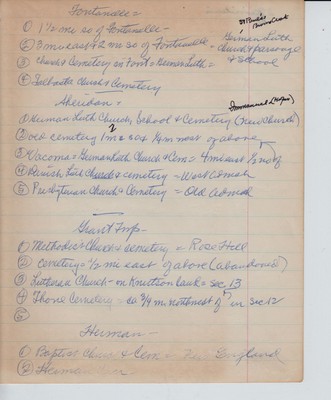 Fontanelle =
St Paul's
① 1½ mi so of Fontanelle -
② 3 mi east & 2 mi so of Fontanelle - German Luth Church & parsonage & School
③ Church & Cemetery in Font = German Luth =
④ Church & Cemetery
Sheridan =
Immanuel
① German Luth Church, School & Cemetery (New Church)
② old cemetery 1 mi so & ½ mi west of above
③ Vacoma = German Luth Church & Cem = 4 mi east
④ Danish Luth Church & cemetery = West of
⑤ Presbyterian Church & Cemetery = Old
Grant Twp -
① Methodist Church & cemetery = Rose Hill
② Cemetery = ½ mi east of above (abandoned)
③ Lutheran Church - on Knutson Land = sec 13
④ Thone Cemetery = so ¾ mi northwest of in sec 12
⑤
Herman -
① Baptist Church & Cem = New England
② Herman